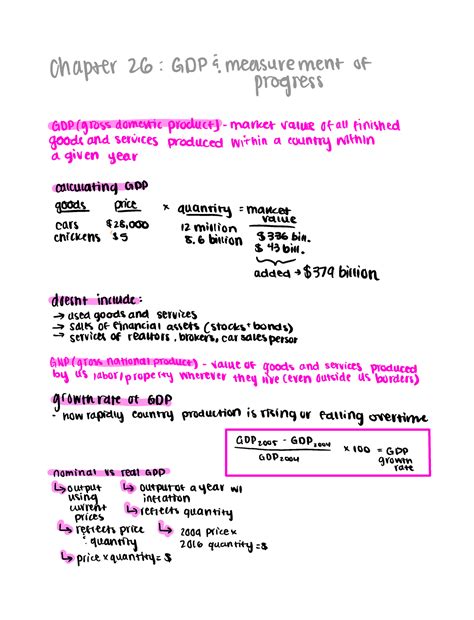 Chapter 26: GDP & measurement of
progress
GDP (gross domestic product) - market value of all finished
goods and services produced within a country within
a given year
calculating GDP
goods price x quantity = market value
cars $28,000 12 million $336 bill.
chickens $5 8.6 billion $43 bill.
added → $379 billion
doesnt include:
→ used goods and services
→ sales of financial assets (stocks + bonds)
→ services of realtors, brokers, car salesperson
GNP (gross national product) - value of goods and services produced
by US labor/property wherever they live (even outside US borders)
growth rate of GDP
- how rapidly country production is rising or falling overtime
GDP2005 - GDP2004
GDP2004
x 100 = GDP growth rate
nominal vs real GDP
↳ output using current prices
↳ reflects price & quantity
↳ price x quantity = $
↳ output of a year w/ inflation
↳ reflects quantity
↳ 2009 price x 2016 quantity = $